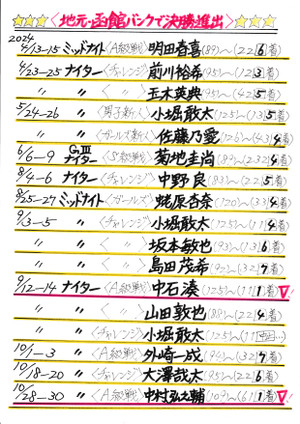 〈地元・函館バンクで決勝進出〉
2024
4/13-15 ミッドナイト〈A級戦〉明田春喜(89)~(2 2 6着)
4/23-25 ナイター〈チャレンジ〉前川裕希(95)~(1 2 3着)
〃 〃 〈 〃 〉玉木英典(95)~(2 2 5着)
5/24-26 〃 〈男子新人〉小堀敢太(125)~(1 3 5着)
〃 〃 〈ガールズ新人〉佐藤乃愛(126)~(4 3 4着)
6/6-9 GⅢナイター〈S級戦〉菊地圭尚(89)~(2 3 2着)
8/4-6 ナイター〈チャレンジ〉中野良(81)~(2 1 5着)
8/25-27 ミッドナイト〈ガールズ〉蛯原杏奈(120)~(3 3 4着)
9/3-5 ナイター〈チャレンジ〉小堀敢太(125)~(1 1 4着)
〃 〃 〈 〃 〉坂本敏也(93)~(1 3 6着)
〃 〃 〈 〃 〉島田茂希(92)~(3 2 7着)
9/12-14 ナイター〈A級戦〉中石湊(125)~(1 1 1着)
〃 〃 〈 〃 〉山田敦也(88)~(2 2 4着)
〃 〃 〈チャレンジ〉小堀敢太(125)~(1 1
10/1-3 〃 〈A級戦〉外崎一成(94)~(3 2 7着)
10/18-20 〃 〈チャレンジ〉大澤哉太(95)~(2 2 6着)
10/28-30 〃 〈A級戦〉中村弘之輔(103)~(6 1着)